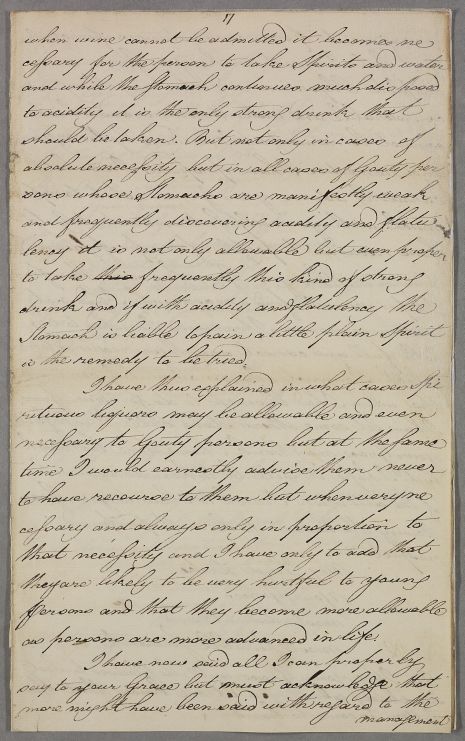 17
when wine cannot be admitted it becomes ne
cessary for the person to take Spirits and water
and while the Stomach continues much disposed
to acidity it is the only strong drink that
should be taken. But not only in cases of
absolute necessity but in all cases of Gouty per
sons whose Stomachs are manifestly weak
and frequently discovering acidity and flatu
lency it is not only allowable but even proper
to take this frequently this kind of strong
drink and if with acidity and flatulency the
Stomach is liable to pain a little plain Spirit
is the remedy to be tried.
I have thus explained in what cases Spi
rituous liquors may be allowable and even
necessary to Gouty persons but at the same
time I would earnestly advise them never
to have recourse to them but when very ne
cessary and always only in proportion to
that necessity and I have only to add that
they are likely to be very hurtful to young
Persons and that they become more allowable
as persons are more advanced in life.
I have now said all I can properly
say to your Grace but must acknowledge that
more might have been said with regard to the
management